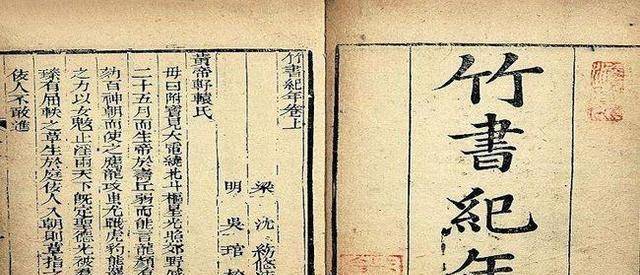 竹書紀年
竹書紀年卷上
梁 沈約
明 吳琯校
黃帝軒轅氏
母曰附寶見大電繞北斗樞星光照郊野感
二十五月而生帝於壽丘弱而能言龍顏
劾百神朝而使之應龍攻蚩尤戰虎豹熊羆
之力以女魃止淫雨天下既定聖德光被群
臻有屈軼之草生於庭佞人入朝則草指
佞人不敢進